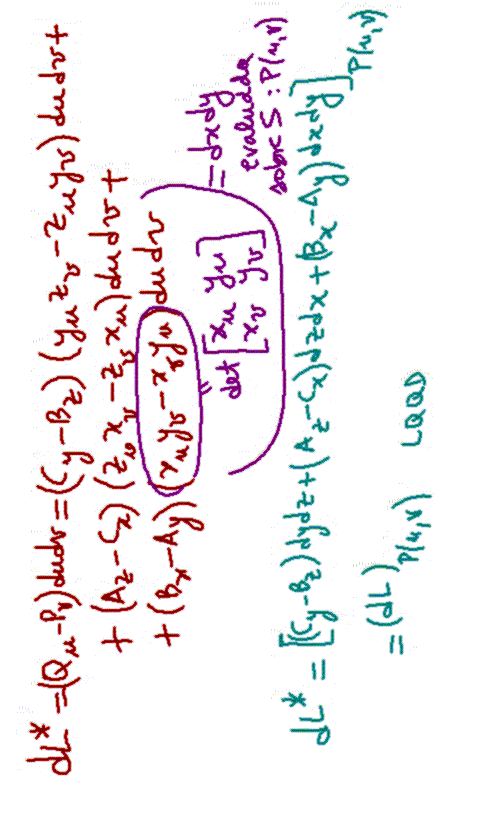 dL* = (Q_u - P_v) du dv = (C_y - B_z) (y_u z_v - z_u y_v) du dv +
+ (A_z - C_x) (z_u x_v - z_v x_u) du dv +
+ (B_x - A_y) (x_u y_v - x_v y_u) du dv
det [x_u y_u
x_v y_v]
= dx dy
evaluada
sobre S : P(u,v)
dL* = [(C_y - B_z) dy dz + (A_z - C_x) dz dx + (B_x - A_y) dx dy]_P(u,v)
= (dL)_P(u,v) LQQD